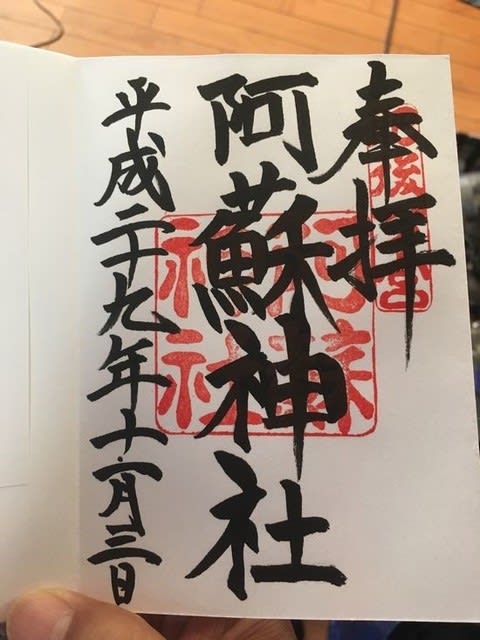 奉拝
阿蘇神社
平成二十九年十一月三日
阿蘇
神社